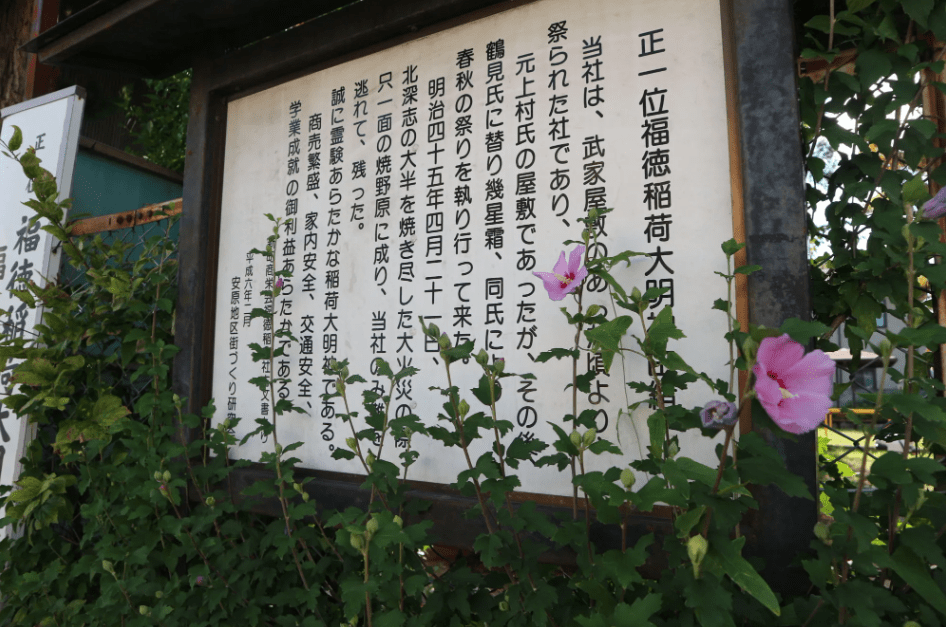 正一位福徳稲荷大明
当社は、武家屋敷のあ 頃より
祭られた社であり、
元上村氏の屋敷であったが、その後
鶴見氏に替り幾星霜、同氏によ
春秋の祭りを執り行って来た。
明治四十五年四月二十一日、
北深志の大半を焼き尽した大火災の際
只一面の焼野原に成り、当社のみ難を
逃れて、残った。
誠に霊験あらたかな稲荷大明神である。
商売繁盛、家内安全、交通安全、
学業成就の御利益あらたかである
商栄会 徳稲 社 文書 り
平成六年二月
安原地区街づくり研究
正
福徳稲荷大